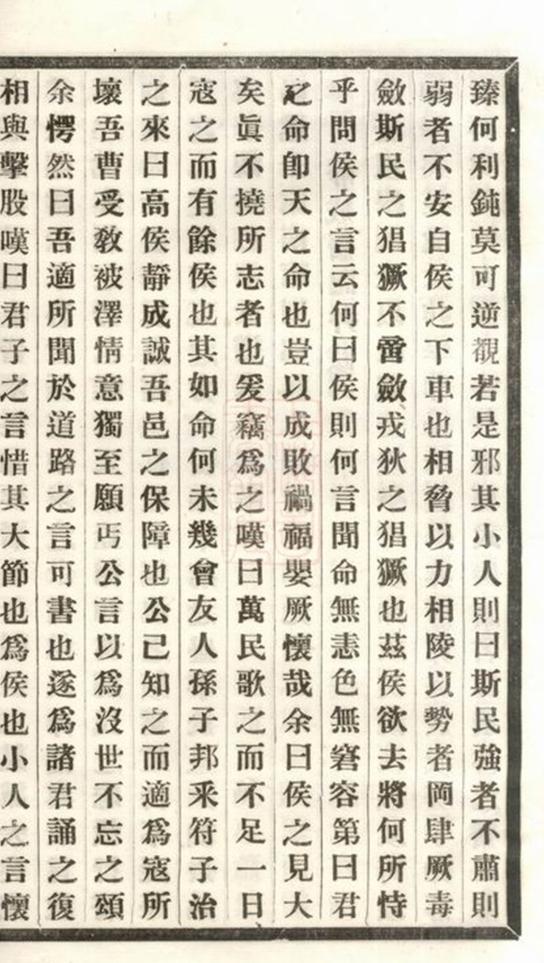 臻何利鈍莫可逆覩若是邪其小人則曰斯民強者不肅則
弱者不安自侯之下車也相脅以力相陵以勢者罔肆厥毒
斂斯民之猖獗不啻斂戎狄之猖獗也茲侯欲去將何所恃
乎問侯之言云何曰侯則何言聞命無恚色無窘容第曰君
之命卽天之命也豈以成敗禍福嬰厥懷哉余曰侯之見大
矣眞不撓所志者也爰竊爲之嘆曰萬民歌之而不足一日
寇之而有餘侯也其如命何未幾會友人孫子邦釆符子治
之來曰高侯靜成誠吾邑之保障也公己知之而適爲寇所
壞吾曹受敎被澤情意獨至願丐公言以爲沒世不忘之頌
余愕然曰吾適所聞於道路之言可書也遂爲諸君誦之復
相與擊股嘆曰君子之言惜其大節也爲侯也小人之言懷